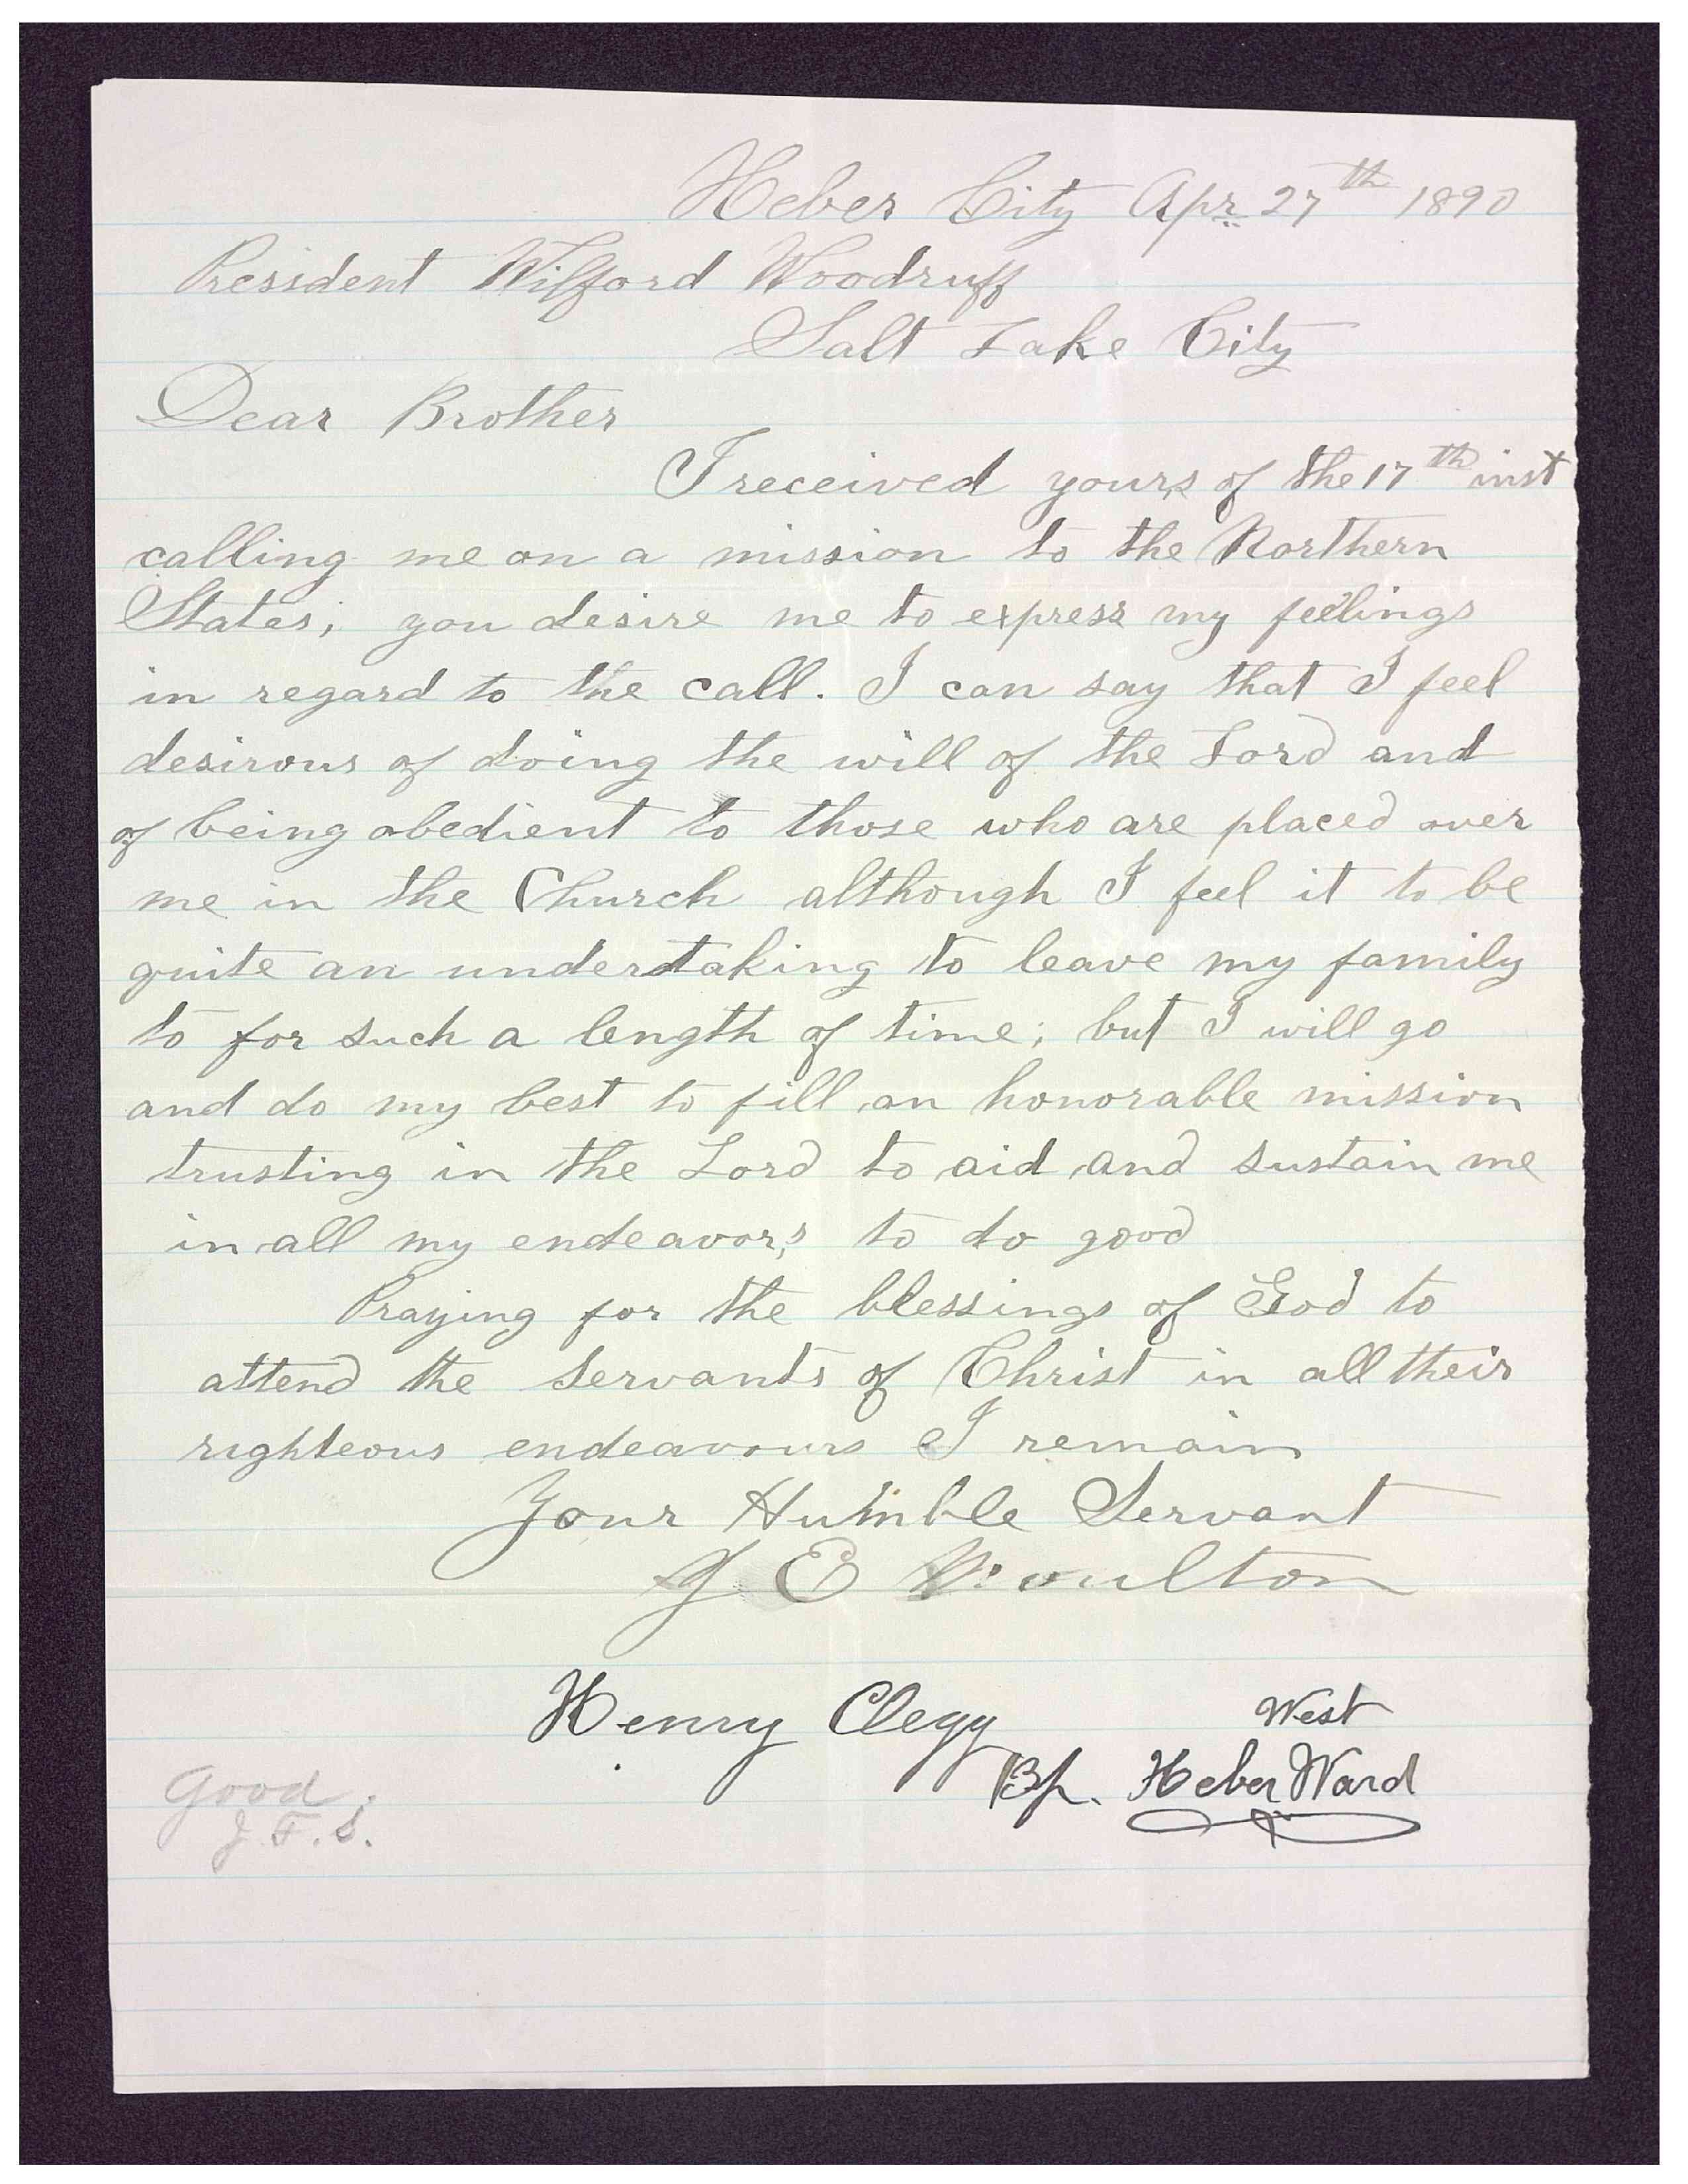 Heber City Apr. 27th 1890
President Wilford Woodruff
Salt Lake City
Dear Brother
I received yours of the 17th inst
calling me on a mission to the Northern
States; you desire me to express my feelings
in regard to the call. I can say that I feel
desirous of doing the will of the Lord and
of being obedient to those who are placed over
me in the Church although I feel it to be
quite an undertaking to leave my family
to for such a length of time; but I will go
and do my best to fill an honorable mission
trusting in the Lord to aid and sustain me
in all my endeavors to do good
Praying for the blessings of God to
attend the servants of Christ in all their
righteous endeavours I remain
Your Humble Servant
J E Moulton
Henry Clegg
West
Bp. Heber Ward
Good.
J. F. S.